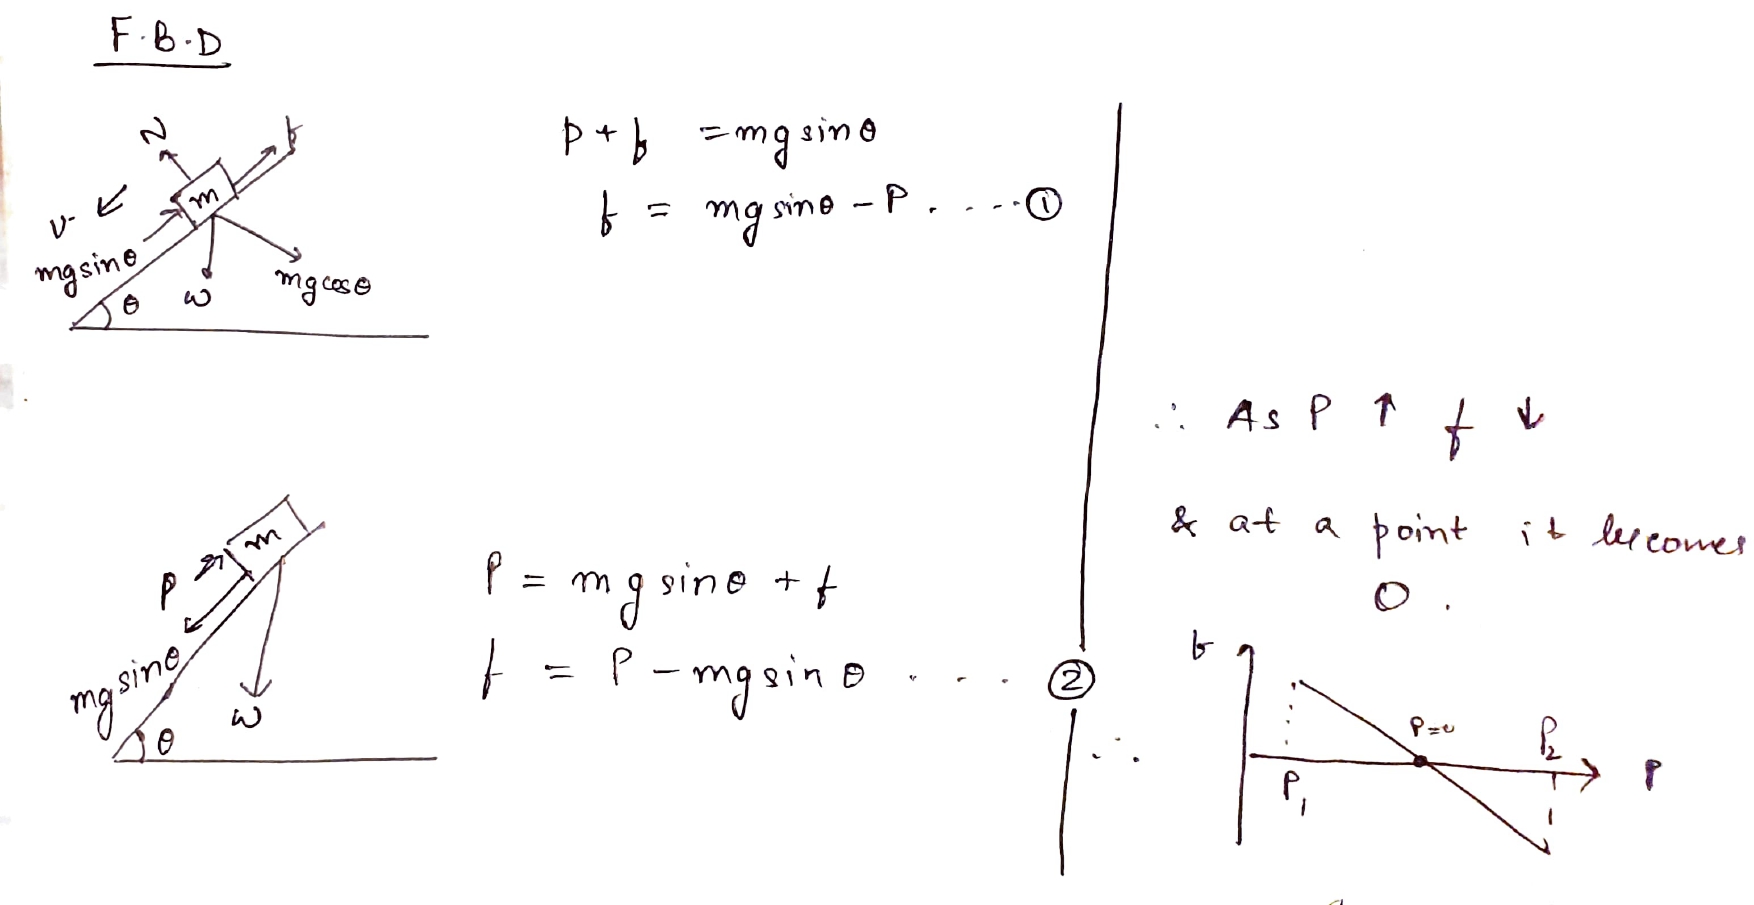 F.B.D
N
f
m
v
mg sinθ
θ
w
mg cosθ
P + f = mg sinθ
f = mg sinθ - P . . . . . ①
m
P
mg sinθ
θ
w
P = mg sinθ + f
f = P - mg sinθ . . . . ②
∴ As P ↑ f ↓
& at a point it becomes
0 .
∴
f
P=0
P₂
P
P₁